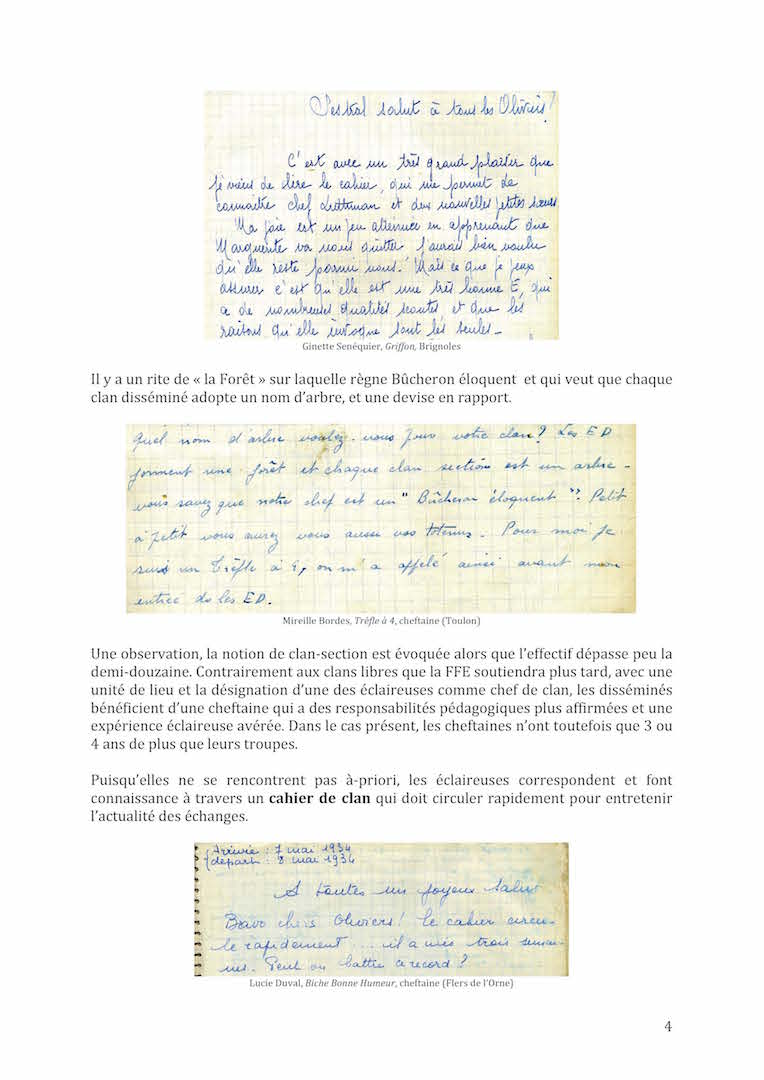 Pestral salut à tous les Oliviers!
C'est avec un très grand plaisir que
je viens de lire le cahier, qui me permet de
connaître chef Liettman et deux nouvelles petites sœurs
Ma joie est un peu atténuée en apprenant que
Marguerite va nous quitter j'aurais bien voulu
qu'elle reste parmi nous. Mais ce que je peux
assurer c'est qu'elle est une très bonne E, qui
a de nombreuses qualités scoutes, et que les
raisons qu'elle invoque sont les seules _
Ginette Senéquier, Griffon, Brignoles
Il y a un rite de « la Forêt » sur laquelle règne Bûcheron éloquent et qui veut que chaque
clan disséminé adopte un nom d'arbre, et une devise en rapport.
Quel nom d'arbre voulez-vous pour votre clan? Les ED
forment une forêt et chaque clan section est un arbre -
vous savez que notre chef est un "Bûcheron éloquent"? Petit
à petit vous aurez vous aussi vos totems. Pour moi je
suis un Trèfle à 4, on m'a appelé ainsi avant mon
entrée ds les ED.
Mireille Bordes, Trèfle à 4, cheftaine (Toulon)
Une observation, la notion de clan-section est évoquée alors que l'effectif dépasse peu la
demi-douzaine. Contrairement aux clans libres que la FFE soutiendra plus tard, avec une
unité de lieu et la désignation d'une des éclaireuses comme chef de clan, les disséminés
bénéficient d'une cheftaine qui a des responsabilités pédagogiques plus affirmées et une
expérience éclaireuse avérée. Dans le cas présent, les cheftaines n'ont toutefois que 3 ou
4 ans de plus que leurs troupes.
Puisqu'elles ne se rencontrent pas à-priori, les éclaireuses correspondent et font
connaissance à travers un cahier de clan qui doit circuler rapidement pour entretenir
l'actualité des échanges.
Arrivée : 7 mai 1934
départ : 8 mai 1934
A toutes un joyeux salut
Bravo chers Oliviers! le cahier circu-
le rapidement ... il a mis trois semai-
nes. Peut on battre ce record?
Lucie Duval, Biche Bonne Humeur, cheftaine (Flers de l'Orne)
4